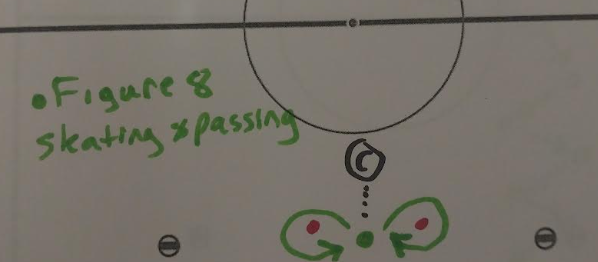 • Figure 8
skating & passing
C